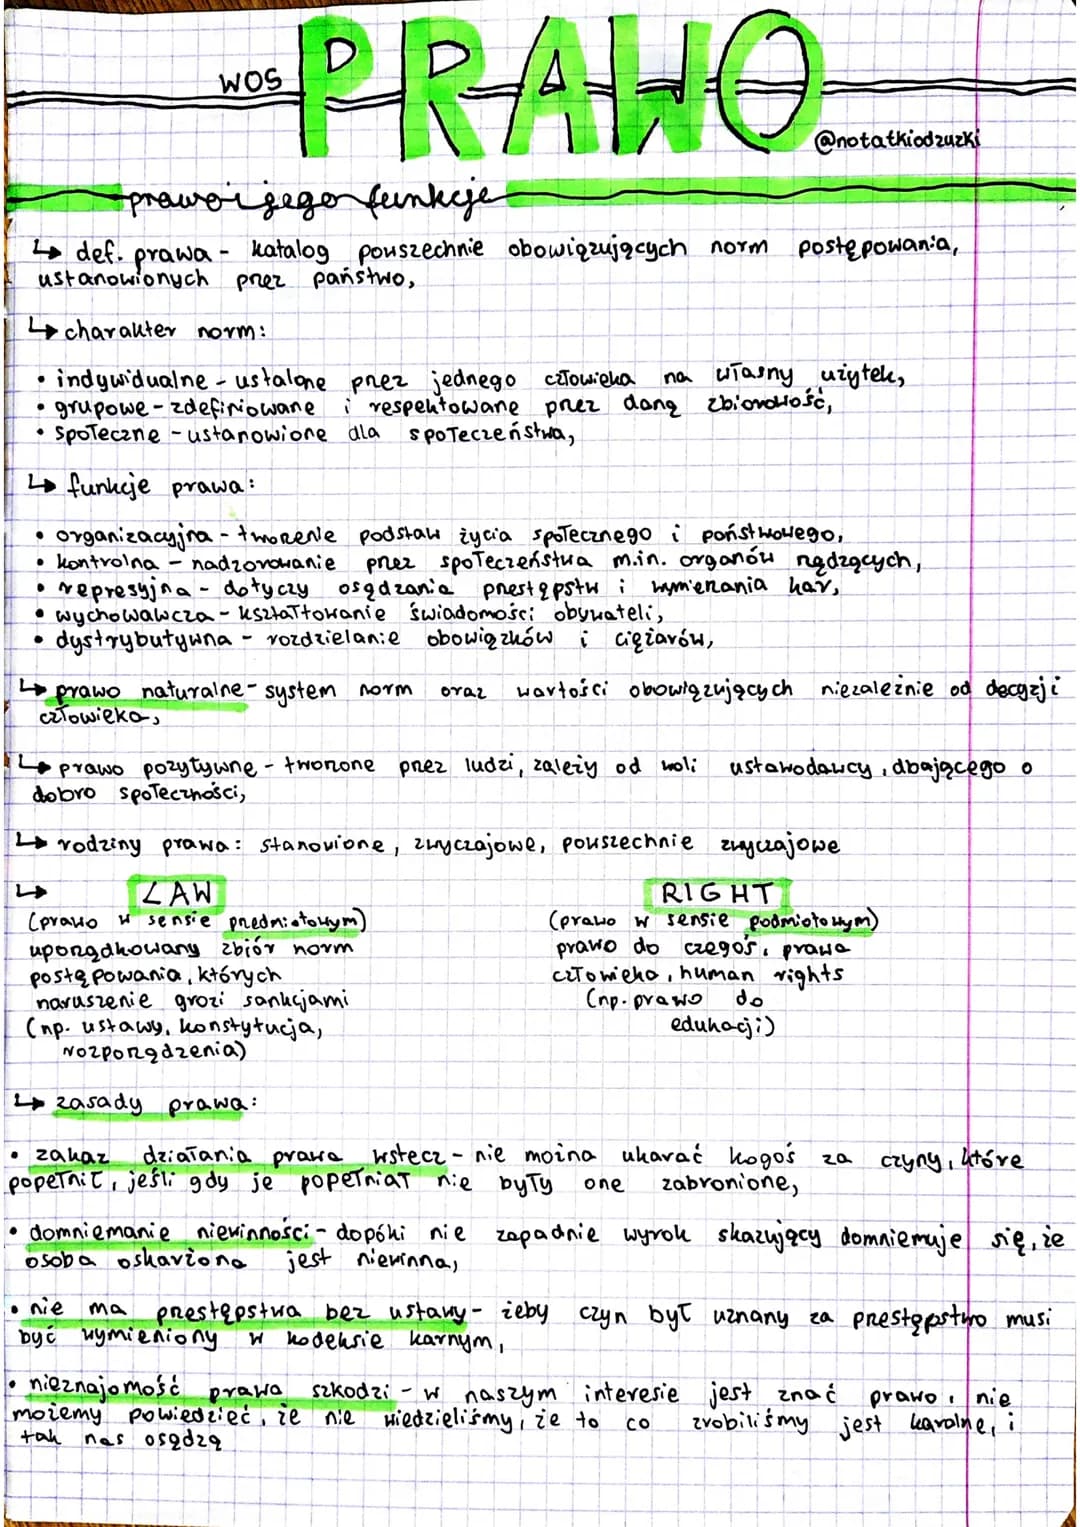 WOS
PRAWO
@notatkiodzuzki
prawo i jego funkcje
↳ def. prawa - katalog powszechnie obowiązujących norm postępowania,
ustanowionych przez państwo,
↳ charakter norm:
• indywidualne - ustalone przez jednego człowieka na własny użytek,
• grupowe - zdefiniowane i respektowane przez daną zbiorowość,
• społeczne - ustanowione dla społeczeństwa,
↳ funkcje prawa:
• organizacyjna - tworzenie podstaw życia społecznego i państwowego,
• kontrolna - nadzorowanie przez społeczeństwa m.in. organów rządzących,
• represyjna - dotyczy osądzania przestępstw i wymierzania kar,
• wychowawcza - kształtowanie świadomości obywateli,
• dystrybutywna - rozdzielanie obowiązków i ciężarów,
↳ prawo naturalne - system norm oraz wartości obowiązujących niezależnie od decyzji
człowieka,
↳ prawo pozytywne - tworzone przez ludzi, zależy od woli ustawodawcy, dbającego o
dobro społeczności,
↳ rodziny prawa: stanowione, zwyczajowe, powszechnie zwyczajowe
↳ LAW
(prawo w sensie przedmiotowym)
uporządkowany zbiór norm
postępowania, których
naruszenie grozi sankcjami
(np. ustawy, konstytucja,
rozporządzenia)
RIGHT
(prawo w sensie podmiotowym)
prawo do czegoś, prawa
człowieka, human rights
(np. prawo do
edukacji)
↳ zasady prawa:
• zakaz działania prawa wstecz - nie można ukarać kogoś za czyny, które
popełnił, jeśli gdy je popełniał nie były one zabronione,
• domniemanie niewinności - dopóki nie zapadnie wyrok skazujący domniemuje się, że
osoba oskarżona jest niewinna,
• nie ma przestępstwa bez ustawy - żeby czyn był uznany za przestępstwo musi
być wymieniony w kodeksie karnym,
• nieznajomość prawa szkodzi - w naszym interesie jest znać prawo, nie
możemy powiedzieć, że nie wiedzieliśmy, że to co zrobiliśmy jest karalne, i
tak nas osądzą